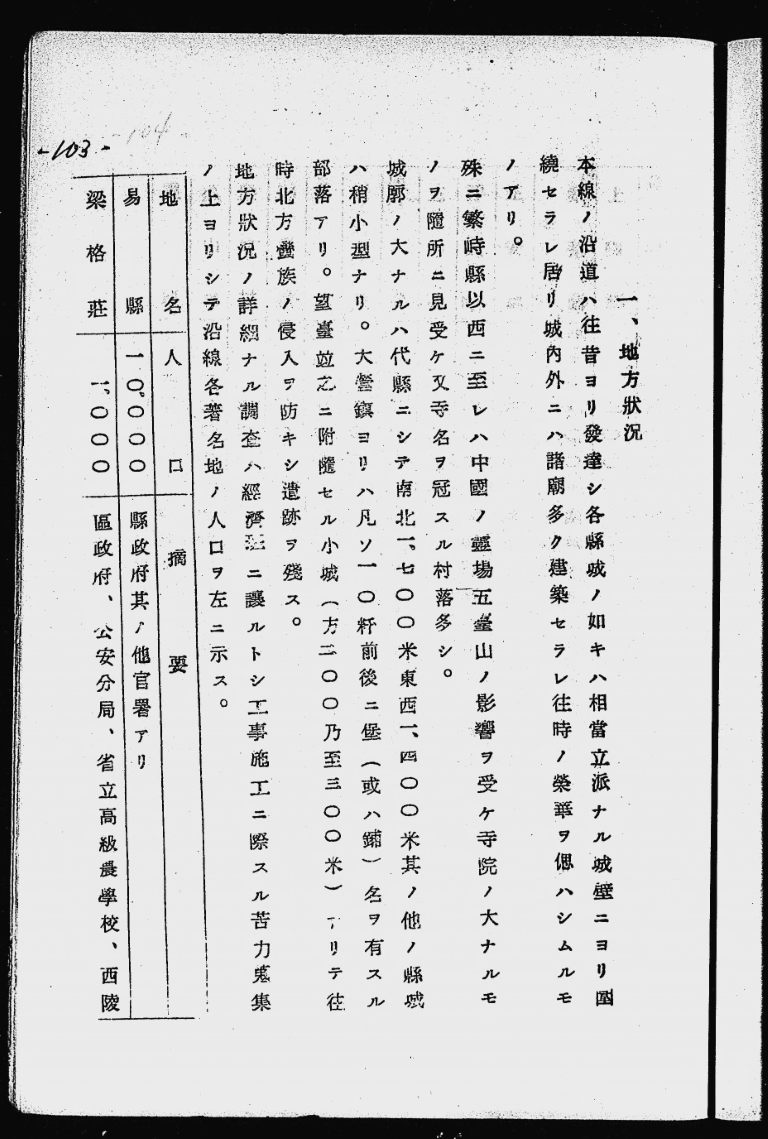 一、地方狀況
本線ノ沿道ハ往昔ヨリ發達シ各縣城ノ如キハ相當立派ナル城壁ニヨリ圍
繞セラレ居リ城內外ニハ諸廟多ク建築セラレ往時ノ榮華ヲ偲ハシムルモ
ノアリ。
殊ニ繁峙縣以西ニ至レハ中國ノ靈場五臺山ノ影響ヲ受ケ寺院ノ大ナルモ
ノヲ隨所ニ見受ケ又寺名ヲ冠スル村落多シ。
城廓ノ大ナルハ代縣ニシテ南北一、七〇〇米東西一、四〇〇米其ノ他ノ縣城
ハ稍小型ナリ。大營鎭ヨリハ凡ソ一〇粁前後ニ堡（或ハ鋪）名ヲ有スル
部落アリ。望臺竝之ニ附隨セル小城（方二〇〇乃至三〇〇米）アリテ往
時北方蠻族ノ侵入ヲ防キシ遺跡ヲ殘ス。
地方狀況ノ詳細ナル調查ハ經濟班ニ讓ルトシ工事施工ニ際スル苦力蒐集
ノ上ヨリシテ沿線各著名地ノ人口ヲ左ニ示ス。
地名 人口 摘要
易縣 一〇、〇〇〇 縣政府其ノ他官署アリ
梁格莊 一、〇〇〇 區政府、公安分局、省立高級農學校、西陵
-103-
-104-